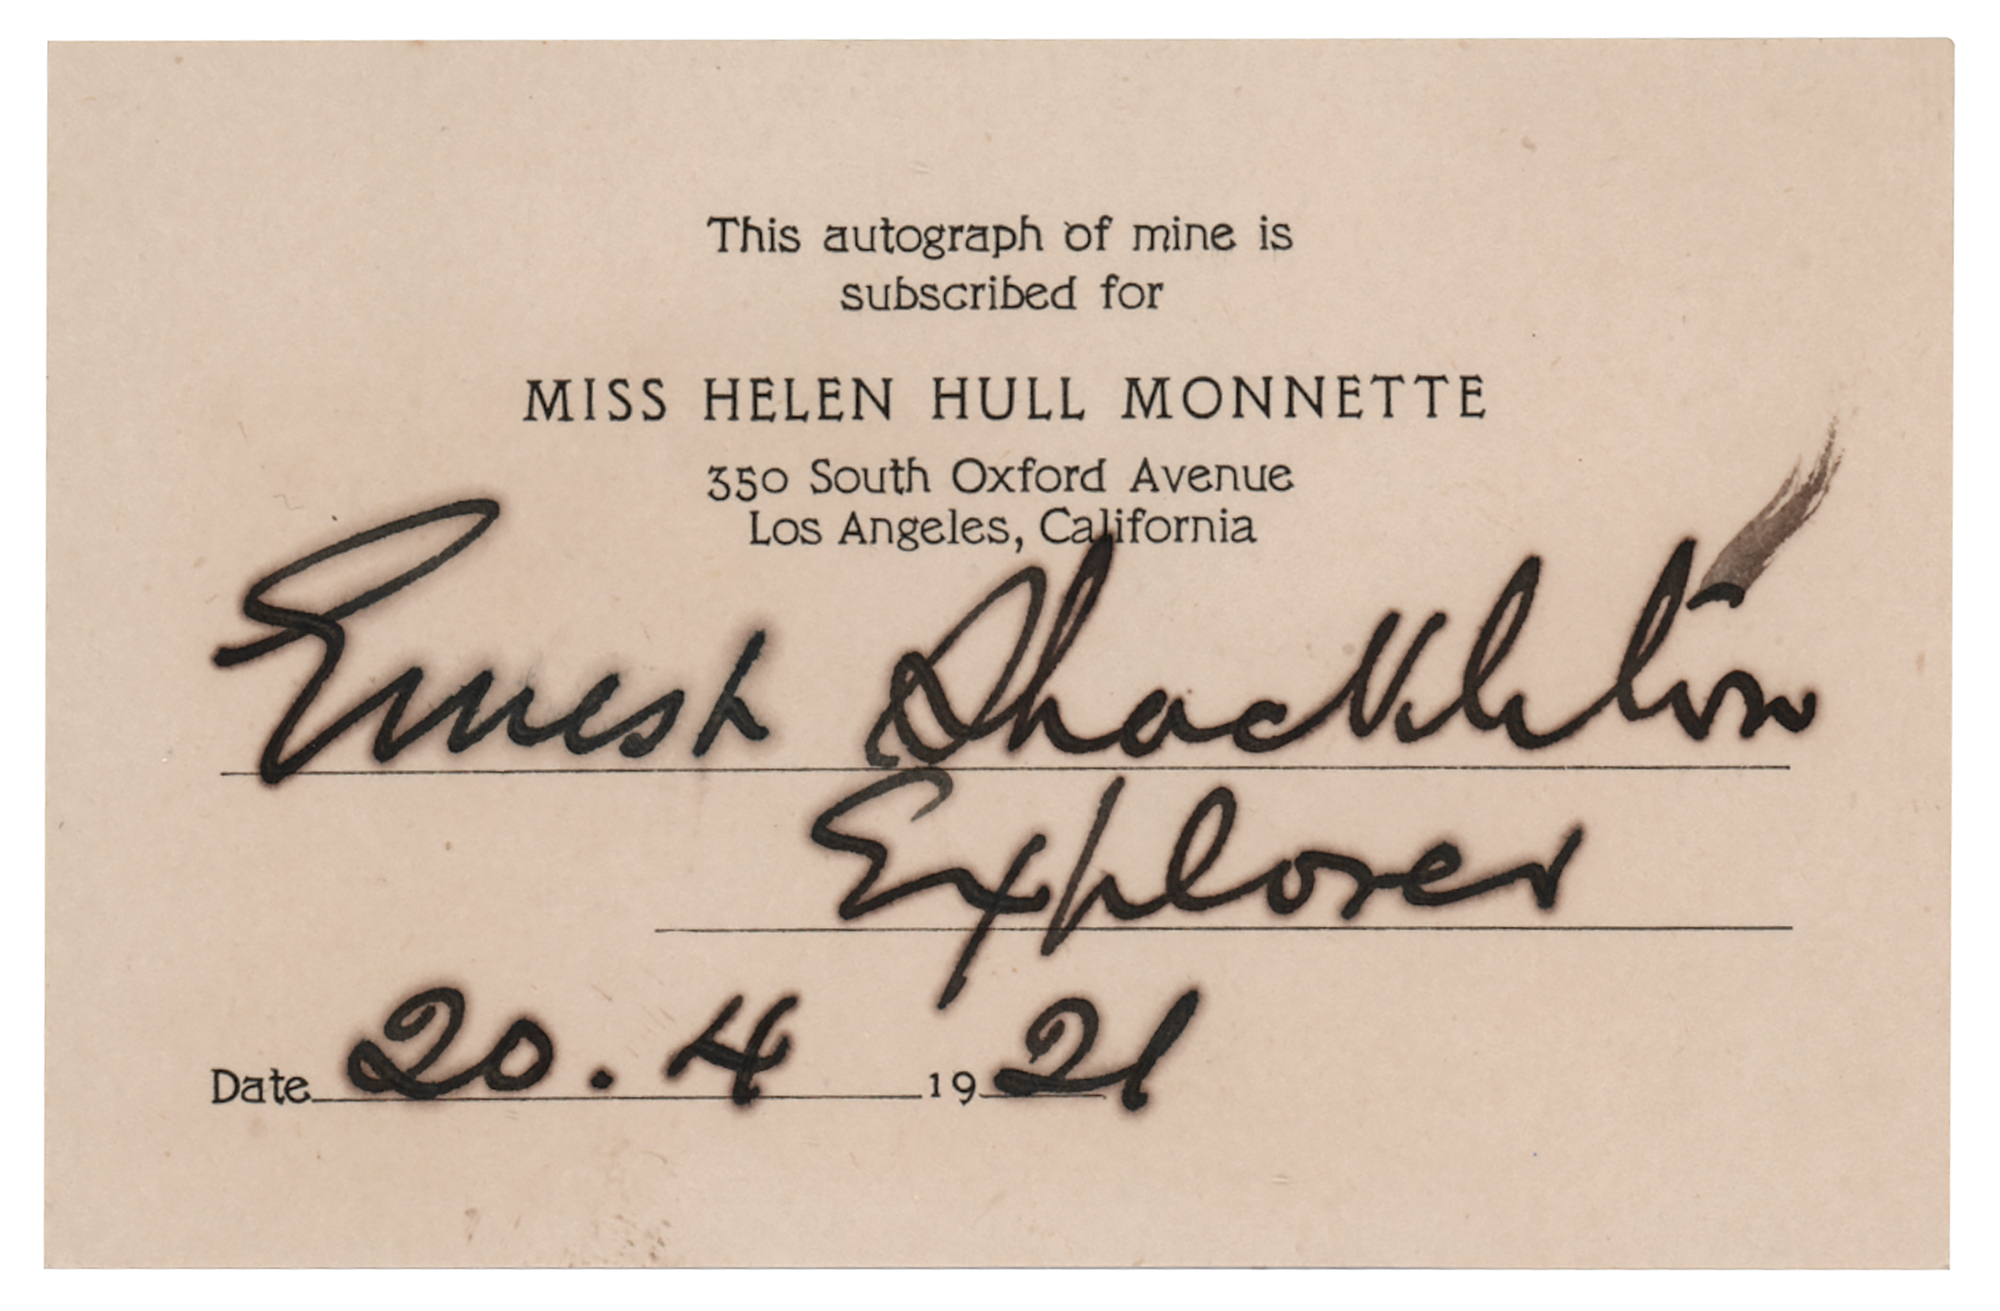 This autograph of mine is
subscribed for
MISS HELEN HULL MONNETTE
350 South Oxford Avenue
Los Angeles, California
Ernest Shackleton
Explorer
Date 20.4 1921